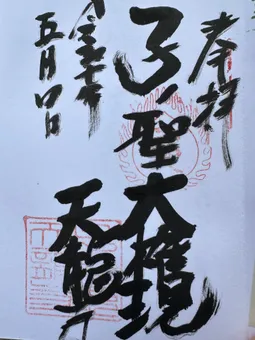 奉拝
子ノ聖大権現
天龍寺
令和年
五月日